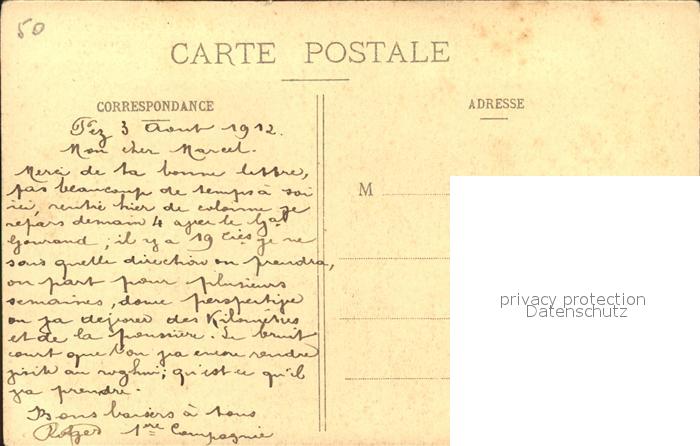 50
CARTE POSTALE
CORRESPONDANCE
Fez 3 Aout 1912.
Mon cher Marcel.
Merci de ta bonne lettre,
pas beaucoup de temps à soi
ici, rentré hier de colonne je
repars demain 4 avec le Gal
Gouraud ; il y a 19 Cies je ne
sais quelle direction on prendra,
on part pour plusieurs
semaines, douce perspective
on va déjeuner des Kilomètres
et de la poussière. Le bruit
court que l'on va encore rendre
visite au roghui ; qu'est ce qu'il
va prendre.
Bons baisers à tous
1ère Compagnie
ADRESSE
M
privacy protection
Datenschutz